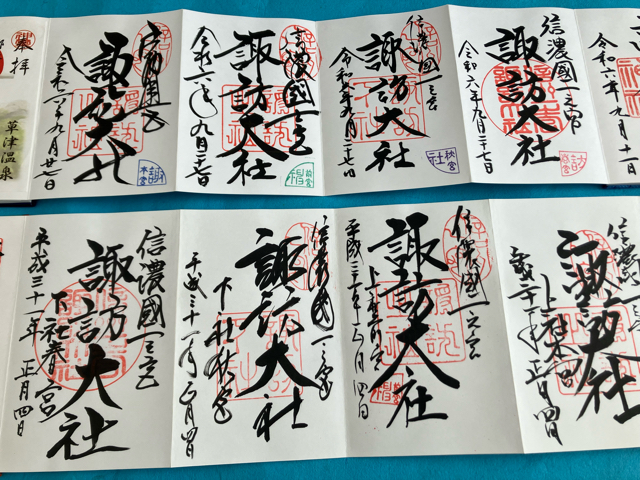 令和六年九月十一
信濃國一之宮
諏訪大社
令和六年九月二十七日
信濃國一之宮
諏訪大社
令和六年九月二十七日
秋宮
社
信濃國一之宮
諏訪大社
令和六年九月二十七日
信濃國一之宮
諏訪大社
令和六年九月廿七日
本宮
諏
奉拝
草津温泉
信濃國一之宮
諏訪大社
上社本宮
正月四日
信濃國一之宮
諏訪大社
上社前宮
平成三十一年正月四日
信濃國一之宮
諏訪大社
下社秋宮
平成三十一年正月四日
信濃國一之宮
諏訪大社
下社春宮
平成三十一年正月四日